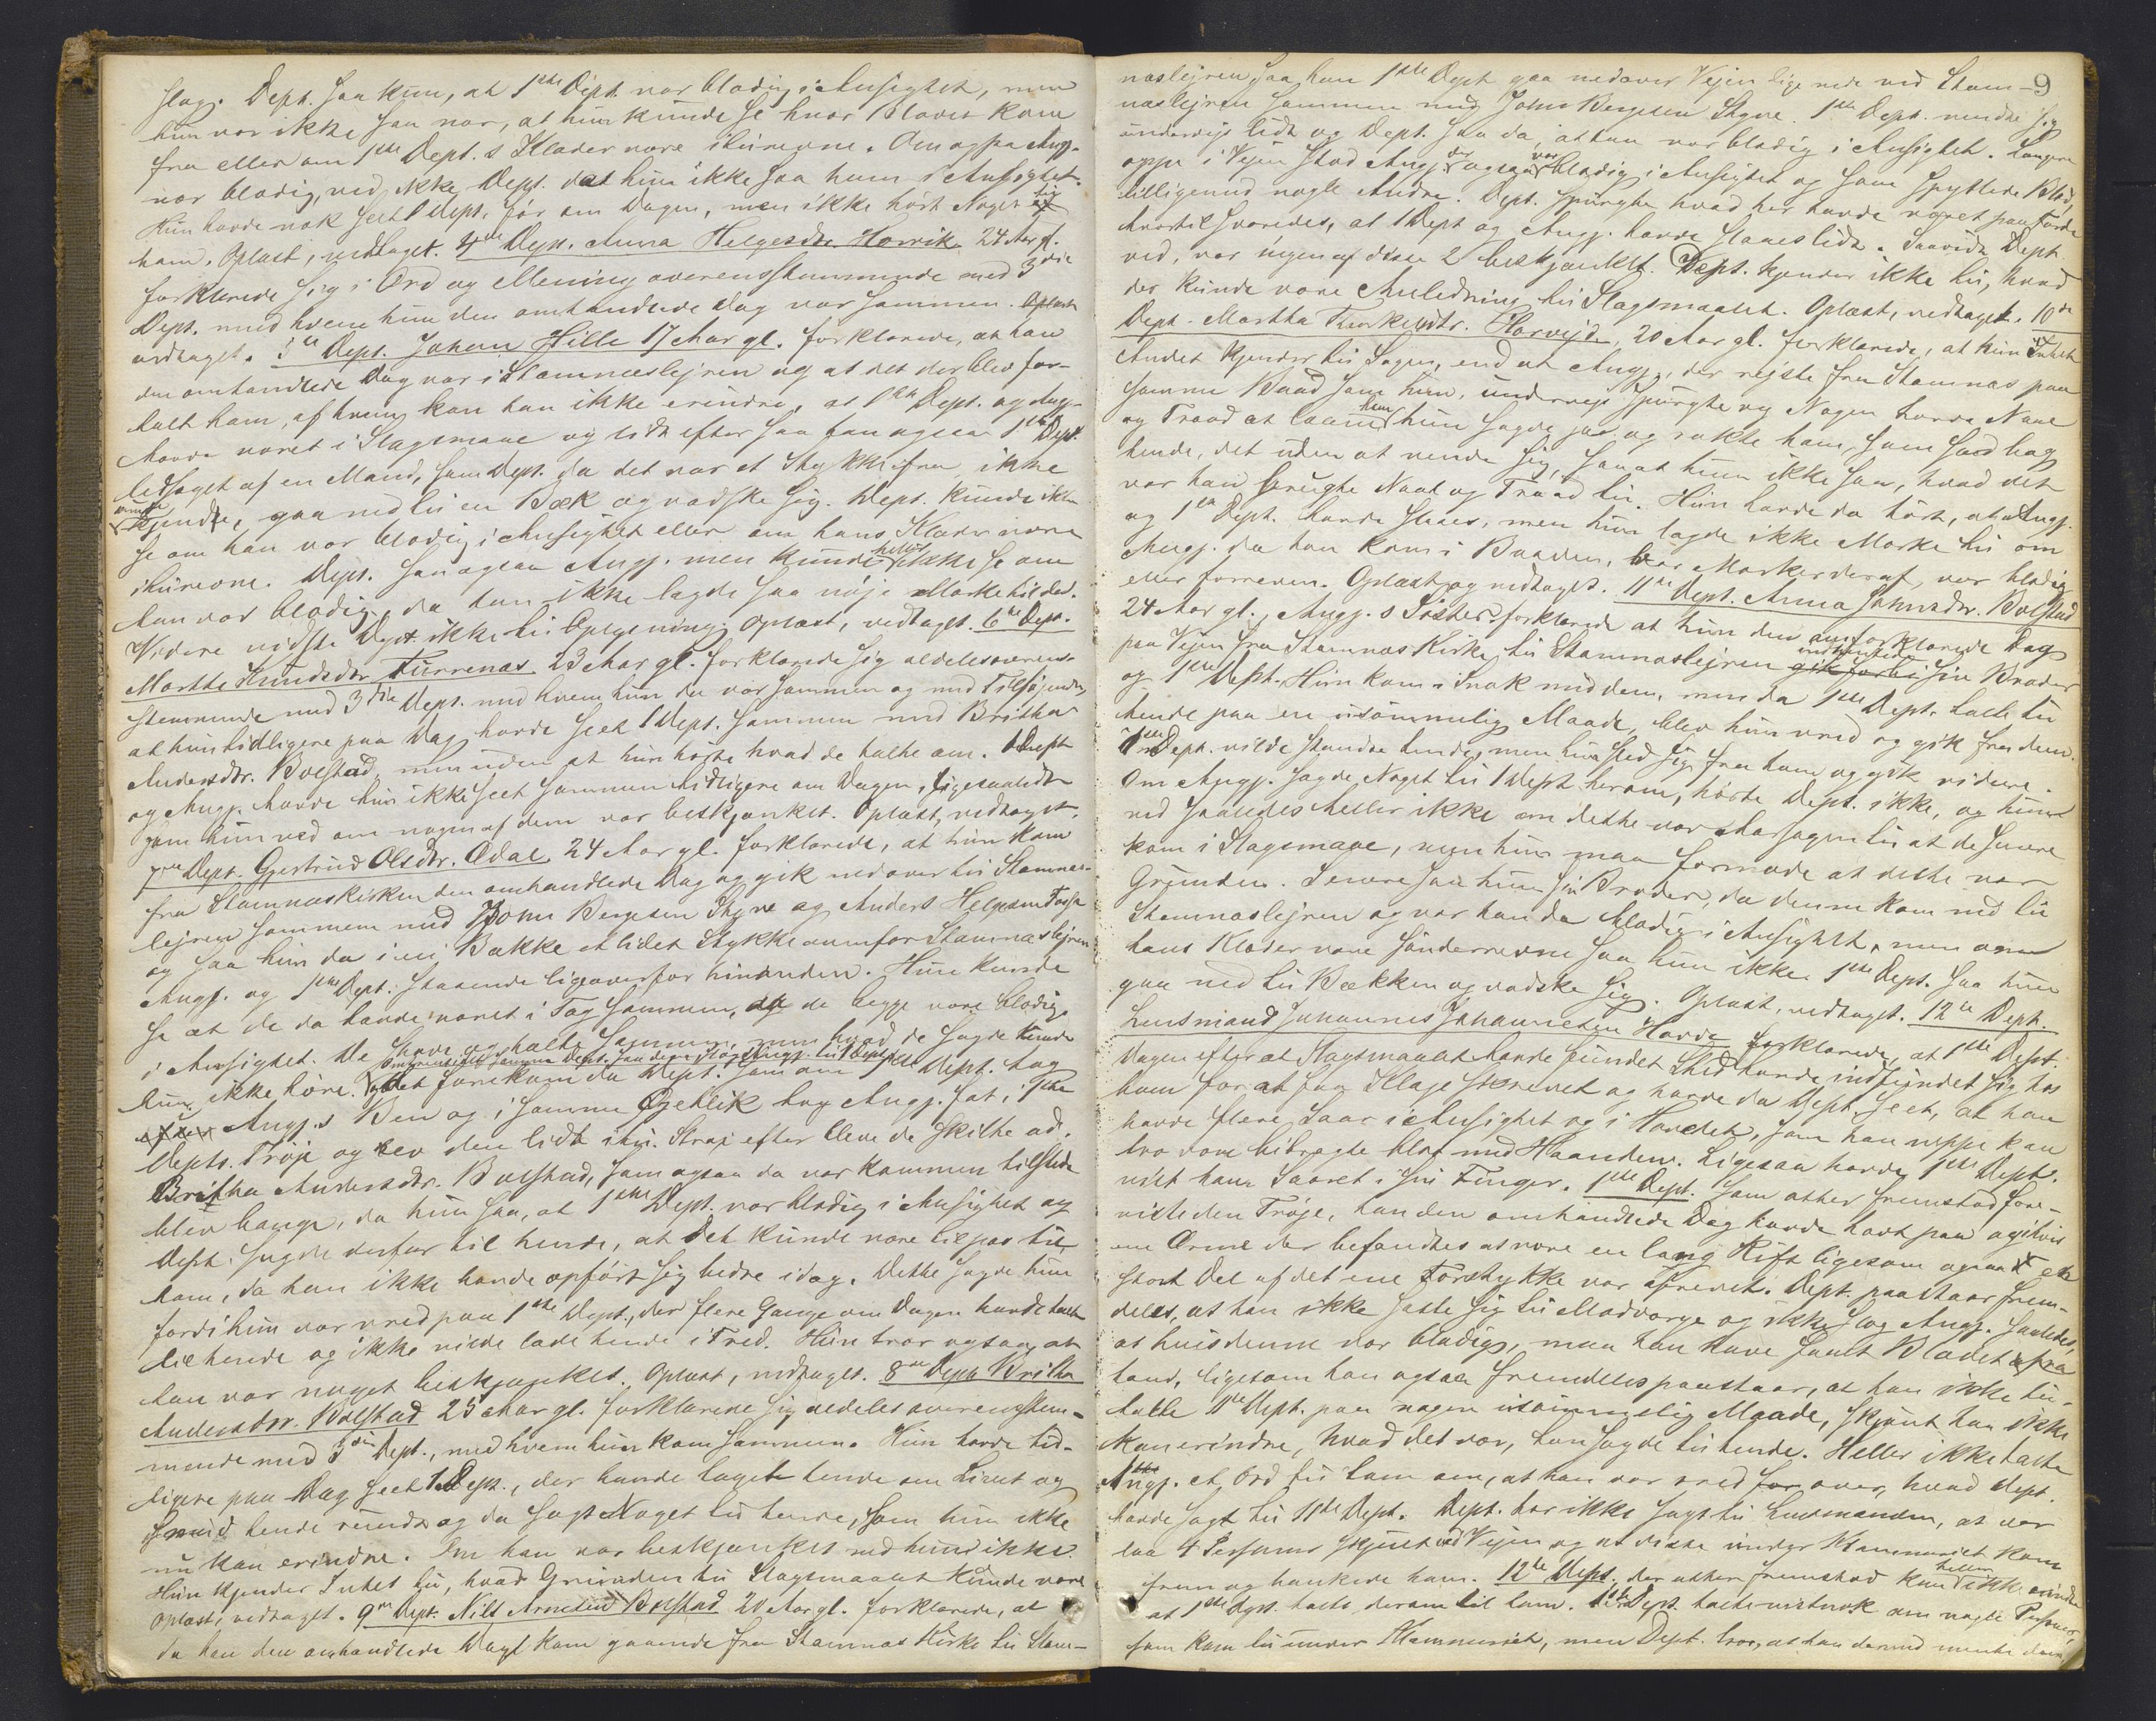 slag. Dept. saa kun, at 1ste Dept. var blodig i Ansigtet, men
hun var ikke saa nær, at hun kunde se hvor Blodet kom
fra eller om 1ste Dept.s Klæder vare iturevne. Om ogsaa Angj.
var blodig, ved ikke Dept. da hun ikke saa ham i Ansigtet.
Hun havde nok seet 1 Dept. før om Dagen, men ikke hørt Noget til
ham. Oplæst, vedtaget. 4de Dept. Anna Helgesdtr. Horvik 24 Aar gl.
forklarede sig i Ord og Mening overensstemmende med 3die
Dept. med hvem hun den omhandlede Dag var sammen. Oplæst
vedtaget. 5te Dept. Johan Hille 17 Aar gl. forklarede, at han
den omhandlede Dag var i Stamneslejren og at det der blev for-
talt ham, af hvem kan han ikke erindre, at 1ste Dept. og Angj.
havde været i Slagsmaal og lidt efter saa han ogsaa 1ste Dept.
ledsaget af en Mand, som Dept. da det var et Stykke ifra, ikke
kjendte, gaa ned til en Bæk og vadske sig. Dept. kunde ikke
se om han var blodig i Ansigtet eller om hans Klæder vare
iturevne. Dept. saa ogsaa Angj. men kunde heller ikke se om
han var blodig, da han ikke lagde saa nøje Mærke til det.
Videre vidste Dept. ikke til Oplysning. Oplæst, vedtaget. 6te Dept.
Marthe Knudsdtr. Furrenæs 23 Aar gl. forklarede sig aldeles overens-
stemmende med 3die Dept. med hvem hun da var sammen og med Tilføjende,
at hun tidligere paa Dag havde seet 1 Dept. sammen med Britha
Andersdtr. Bolstad, men uden at hun hørte hvad de talte om. 1 Dept.
og Angj. havde hun ikke seet sammen tidligere om Dagen, ligesaalidt
som hun ved om nogen af dem var beskjænket. Oplæst, vedtaget.
7de Dept. Gjertrud Olsdtr. Ædal 24 Aar gl. forklarede, at hun kom
fra Stamneskirken den omhandlede Dag og gik nedover til Stamnes-
lejren sammen med John Bergesen Skjre og Anders Helgesen
og saa hun da i en Bakke et lidet Stykke ovenfor Stamneslejren
Angj. og 1ste Dept. staaende ligeoverfor hinanden. Hun kunde
se at de da havde været i Tag sammen, da de begge vare blodige
i Ansigtet. De stode og talte sammen, men hvad de sagde kunde
hun ikke høre. Det forekom da Dept. som om 1ste Dept. tog
Angj.s Ben og i samme Øjeblik tog Angj. fat i 1ste
Depts. Trøje og rev den lidt itu. Strax efter bleve de skilte ad.
Britha Andersdtr. Bolstad, som ogsaa da var kommen tilstede
blev bange, da hun saa, at 1ste Dept. var blodig i Ansigtet og
Dept. sagde derfor til hende, at det kunde være tilpas til
ham, da han ikke havde opført sig bedre idag. Dette sagde hun
fordi hun var vred paa 1ste Dept., der flere Gange om Dagen havde talt
til hende og ikke vilde lade hende i Fred. Hun tror ogsaa, at
han var noget beskjænket. Oplæst, vedtaget. 8de Dept. Britha
Andersdtr. Bolstad 25 Aar gl. forklarede sig aldeles overensstem-
mende med 3die Dept., med hvem hun kom sammen. Hun havde tid-
ligere paa Dag seet 1 Dept., der havde taget hende om Livet og
hende rundt og da sagt Noget til hende, som hun ikke
nu kan erindre. Om han var beskjænket ved hun ikke.
Hun kjender Intet til, hvad Grunden til Slagsmaalet kunde være
Oplæst, vedtaget. 9de Dept. Nils Arnesen Bolstad 20 Aar gl. forklarede, at
da han den omhandlede Dag kom gaaende fra Stamnæs Kirke til Stam-
9
neslejren, saa han 1ste Dept. gaa nedover Vejen lige nede ved Stam-
neslejren sammen med John Bergesen Skjre. 1ste Dept. vendte sig
undervejs lidt og Dept. saa da, at han var blodig i Ansigtet. Længere
oppe i Vejen stod Angj. der ogsaa var blodig i Ansigtet og som spyttede Blod,
tilligemed nogle Andre. Dept. spurgte hvad her havde været paa Færde
hvortil svaredes, at 1 Dept og Angj. havde slaaes lidt. Saavidt Dept
ved, var ingen af disse 2 beskjænket. Dept. kjender ikke til, hvad
der kunde være Anledning til Slagsmaalet. Oplæst, vedtaget. 10de
Dept. Martha Horvejde, 20 Aar gl. forklarede, at hun Intet
Andet kjender til Sagen, end at Angj., der rejste fra Stamnæs paa
samme Baad som hun, undervejs spurgte og Nogen havde Naal
og Traad at laane hun sagde ja, og rakte ham, som sad bag
hende, det uden at vende sig, saa at hun ikke saa, hvad det
var han brugte Naal og Traad til. Hun havde da hørt, at Angj.
og 1ste Dept. havde slaaes, men hun lagde ikke Mærke til om
Angj. da han kom i Baaden, bar Mærker deraf, var blodig
eller forreven. Oplæst og vedtaget. 11te Dept. Anna Johnsdtr. Bolstad
24 Aar gl., Angj.s Søster forklarede at hun den omforklarede Dag
paa Vejen fra Stamnæs Kirke til Stamnæslejren gik forbi sin Broder
og 1ste Dept. Hun kom i Snak med dem, men da 1ste Dept. talte til
hende paa en usømmelig Maade, blev hun vred og gik fra dem.
1ste Dept. vilde standse hende, men hun sled sig fra ham og gik videre.
Om Angj. sagde Noget til 1 Dept herom, hørte Dept. ikke, og hun
ved saaledes heller ikke om dette var Aarsagen til at de senere
kom i Slagsmaal, men hun maa formode at dette var
Grunden. Senere saa hun sin Broder, da denne kom ned til
Stamnæslejren og var han da blodig i Ansigtet, men om
hans Klæder vare sønderrevne saa hun ikke. 1ste Dept. saa hun
gaa ned til Bækken og vadske sig. Oplæst, vedtaget. 12te Dept.
Lensmand Johannes Johannesen Horvde forklarede, at 1ste Dept.
Dagen efter at Slagsmaalet havde fundet Sted havde indfundet sig hos
ham for at faa Klage skrevet og havde da Dept. seet, at han
havde flere Saar i Ansigtet og i Hovedet, som han neppe kan
tro vare bibragte blot med Haanden. Ligesaa havde 1ste Dept.
vist ham Saaret i sin Finger. 1ste Dept. som atter fremstod fore-
viste den Trøje, han den omhandlede Dag havde havt paa og i hvis
ene Ærme der befandtes at være en lang Rift ligesom ogsaa en
stor Del af det ene Forstykke var afrevet. Dept. paastaar frem-
deles, at han ikke satte sig til Modværge og ikke slog Angj. saaledes,
at hvis denne var blodig, maa han have faaet Blodet fra
ham, ligesom han ogsaa fremdeles paastaar, at han ikke til-
talte 11te Dept. paa nogen usømmelig Maade, skjønt han ikke
kan erindre, hvad det var, han sagde til hende. Heller ikke talte
Angj. et Ord til ham om, at han var vred over, hvad Dept.
havde sagt til 11te Dept. Dept. har ikke sagt til Lensmanden, at der
laa 4 Personer skjult ved Vejen og at disse under Klammeriet kom
frem og bankede ham. 12te Dept. der atter fremstod kan heller ikke erindre
at 1ste Dept. talte derom til ham. 1ste Dept. talte vistnok om nogle Personer,
som kom til under Klammeriet, men Dept. tror, at han dermed mente dem,